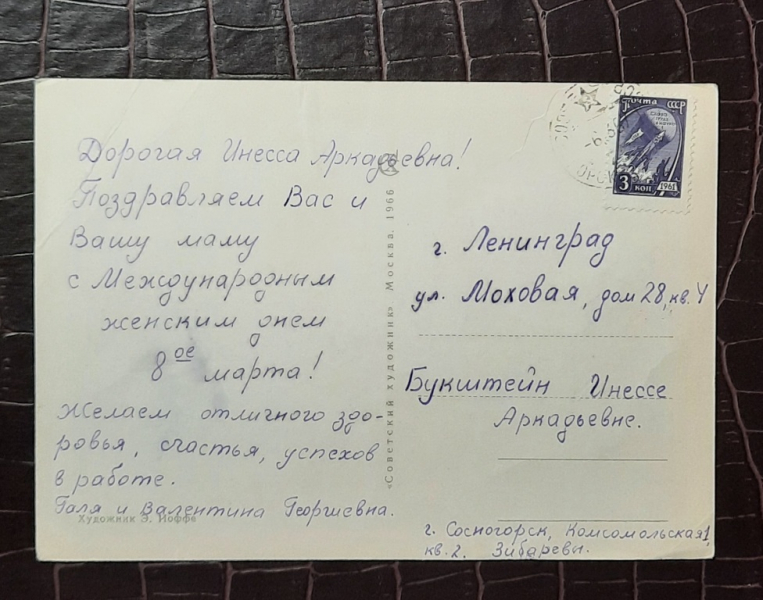 Дорогая Инесса Аркадьевна!
Поздравляем Вас и
Вашу маму
с Международным
женским днем
8ое марта!
Желаем отличного здо-
ровья, счастья, успехов
в работе.
Галя и Валентина Георгиевна.
Художник Э. Иоффе
«Советский художник» Москва. 1966
Почта СССР
3 коп
1961
г. Ленинград
ул. Моховая, дом 28, кв. 4
Букштейн Инессе
Аркадьевне.
г. Сосногорск, Комсомольская 1,
кв. 2. Зибаревы.